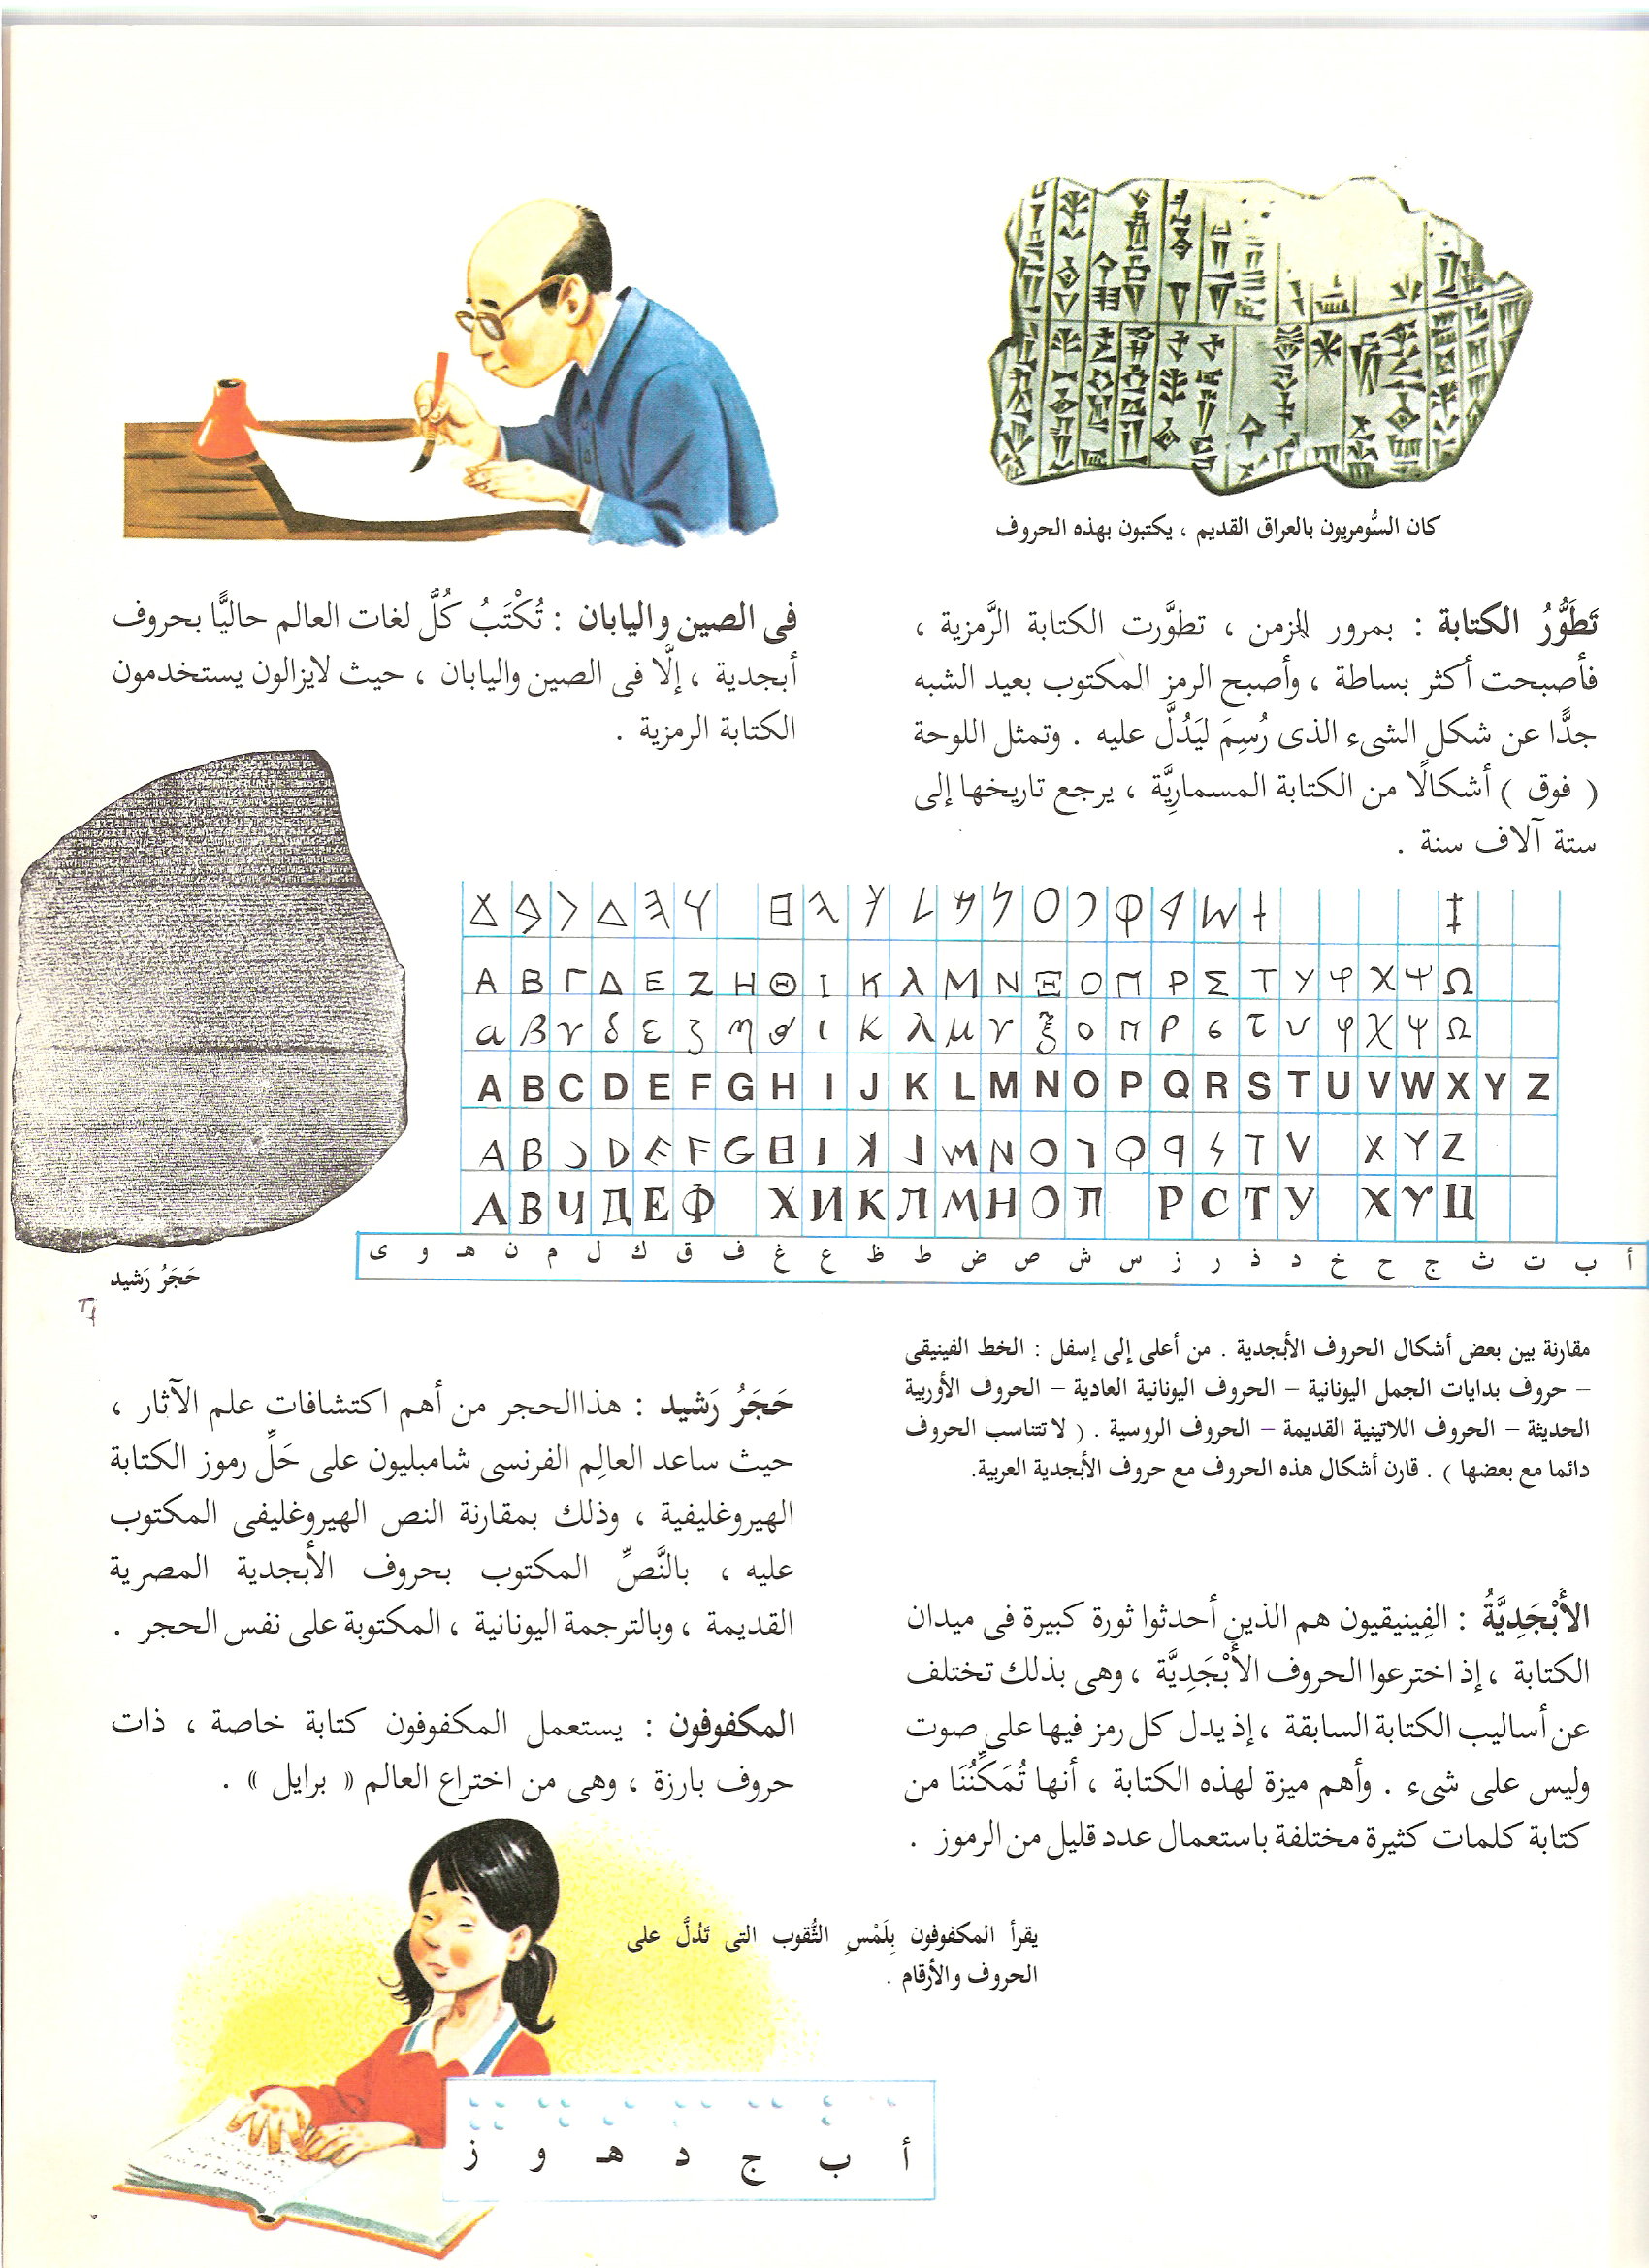 كان السُّومريون بالعراق القديم ، يكتبون بهذه الحروف
تَطَوُّرُ الكتابة : بمرور الزمن ، تطوَّرت الكتابة الرَّمزية ،
فأصبحت أكثر بساطة ، وأصبح الرمز المكتوب بعيد الشبه
جدًّا عن شكل الشىء الذى رُسِمَ ليَدُلَّ عليه . وتمثل اللوحة
( فوق ) أشكالًا من الكتابة المسماريَّة ، يرجع تاريخها إلى
ستة آلاف سنة .
فى الصين واليابان : تُكْتَبُ كُلَّ لغات العالم حاليًّا بحروف
أبجدية ، إلَّا فى الصين واليابان ، حيث لايزالون يستخدمون
الكتابة الرمزية .
Α Β Γ Δ Ε Ζ Η Θ Ι Κ λ Μ Ν Ξ Ο Π Ρ Σ Τ Υ φ Χ Ψ Ω
α β γ δ ε ζ η θ ι κ λ μ ν ξ ο π ρ ϭ τ υ φ χ ψ Ω
A B C D E F G H I J K L M N O P Q R S T U V W X Y Z
А В Ч Д Е Ф Х И К Л М Н О П Р С Т У Х Y Ц
أ ب ت ث ج ح خ د ذ ر ز س ش ص ض ط ظ ع غ ف ق ك ل م ن هـ و ى
حَجَرُ رَشيد
مقارنة بين بعض أشكال الحروف الأبجدية . من أعلى إلى إسفل : الخط الفينيقى
– حروف بدايات الجمل اليونانية – الحروف اليونانية العادية – الحروف الأوربية
الحديثة – الحروف اللاتينية القديمة – الحروف الروسية . ( لا تتناسب الحروف
دائما مع بعضها ) . قارن أشكال هذه الحروف مع حروف الأبجدية العربية.
الأَبْجَدِيَّةُ : الفِينيقيون هم الذين أحدثوا ثورة كبيرة فى ميدان
الكتابة ، إذ اخترعوا الحروف الأَبْجَدِيَّة ، وهى بذلك تختلف
عن أساليب الكتابة السابقة ، إذ يدل كل رمز فيها على صوت
وليس على شىء . وأهم ميزة لهذه الكتابة ، أنها تُمَكِّنُنَا من
كتابة كلمات كثيرة مختلفة باستعمال عدد قليل من الرموز .
حَجَرُ رَشيد : هذاالحجر من أهم اكتشافات علم الآثار ،
حيث ساعد العالِم الفرنسى شامبليون على حَلِّ رموز الكتابة
الهيروغليفية ، وذلك بمقارنة النص الهيروغليفى المكتوب
عليه ، بالنَّصِّ المكتوب بحروف الأبجدية المصرية
القديمة ، وبالترجمة اليونانية ، المكتوبة على نفس الحجر .
المكفوفون : يستعمل المكفوفون كتابة خاصة ، ذات
حروف بارزة ، وهى من اختراع العالم « برايل » .
يقرأ المكفوفون بِلَمْسِ الثُّقوب التى تَدُلَّ على
الحروف والأرقام .
أ ب ج د هـ و ز